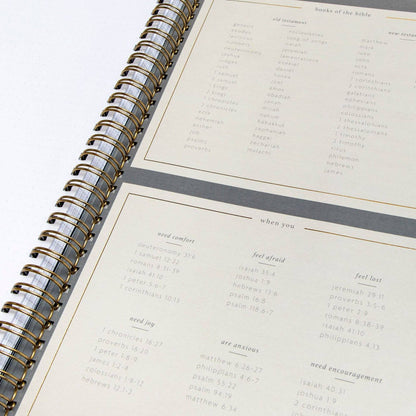 books of the bible
old testament
new testa
genesis
exodus
leviticus
1 samuel
2 samuel
1 kings
2 kings
1 chronicles
2 chronicles
ezra
nehemiah
esther
job
psalms
proverbs
ecclesiastes
song of songs
isaiah
jeremiah
lamentations
ezekiel
daniel
hosea
joel
amos
obadiah
jonah
micah
nahum
habakkuk
zephaniah
haggai
zechariah
malachi
matthew
mark
luke
john
acts
romans
1 corinthians
2 corinthians
galatians
ephesians
philippians
colossians
1 thessalonians
2 thessalonians
1 timothy
2 timothy
titus
philemon
hebrews
james
when you
need comfort
deuteronomy 31:6
1 samuel 12:22
romans 8:31-39
isaiah 41:10
1 peter 5:6-7
2 corinthians 12:9
feel afraid
isaiah 35:4
joshua 1:9
hebrews 13:6
psalm 16:8
psalm 118:6-7
feel lost
jeremiah 29:11
proverbs 3:5-6
1 peter 2:9
romans 8:38-39
isaiah 41:10
philippians 4:13
need joy
1 chronicles 16:27
proverbs 16:20
1 peter 1:8-9
james 1:2-4
colossians 1:9-12
hebrews 12:2-3
are anxious
matthew 6:26-27
philippians 4:6-7
psalm 55:22
psalm 94:19
matthew 6:34
need encouragement
isaiah 40:31
joshua 1:9
2 corinth